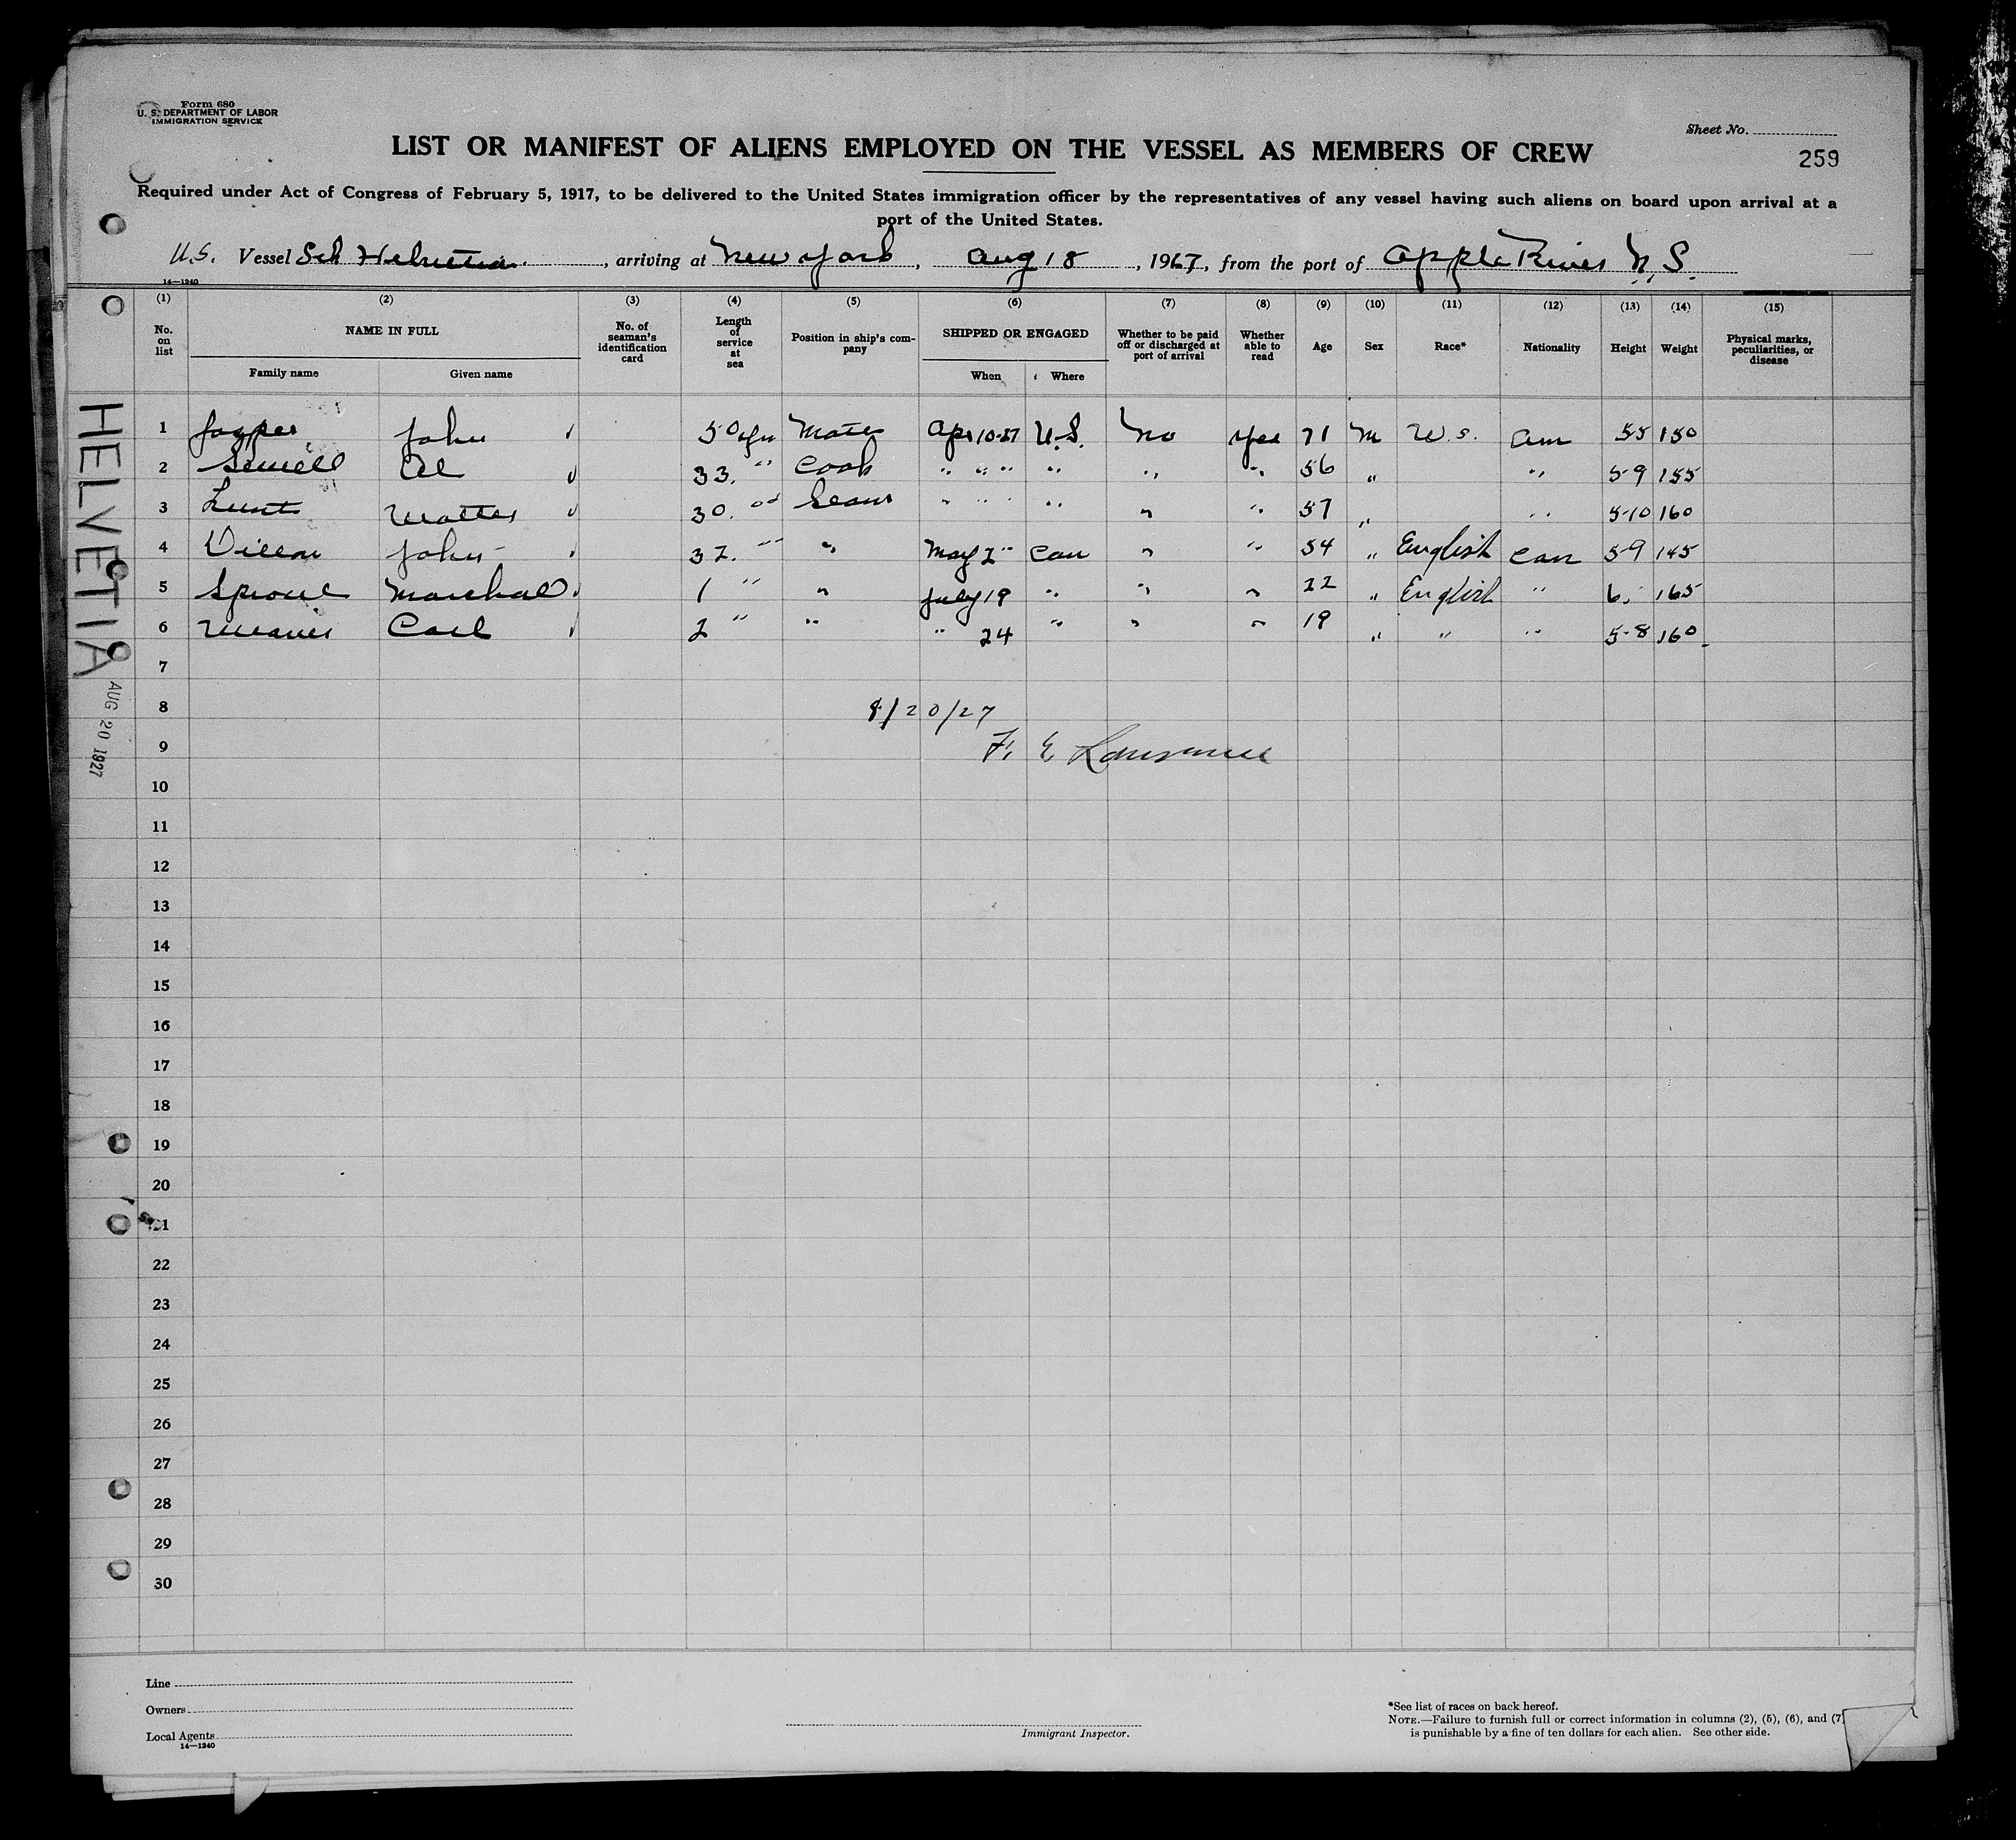 Form 680
U. S. DEPARTMENT OF LABOR
IMMIGRATION SERVICE
Sheet No.
LIST OR MANIFEST OF ALIENS EMPLOYED ON THE VESSEL AS MEMBERS OF CREW
259
Required under Act of Congress of February 5, 1917, to be delivered to the United States immigration officer by the representatives of any vessel having such aliens on board upon arrival at a
port of the United States.
U.S. Vessel Sch Helvetia, arriving at New York, Aug 18, 1927, from the port of Apple River N.S.
14—1240
(1) (2) (3) (4) (5) (6) (7) (8) (9) (10) (11) (12) (13) (14) (15)
No. on list NAME IN FULL Family name Given name No. of seaman's identification card Length of service at sea Position in ship's company SHIPPED OR ENGAGED When Where Whether to be paid off or discharged at port of arrival Whether able to read Age Sex Race* Nationality Height Weight Physical marks, peculiarities, or disease
1 John 50 yrs Mate Apr 10-27 U.S. No Yes 71 M W.S. Am 5 5 150
2 Sewell Al 33 " Cook " " " " " " 56 " " 5-9 155
3 Lunt Walter 30 " Seam " " " " " 57 " " 5-10 160
4 John 32 " " May 2 " Can " " 54 " English Can 5-9 145
5 Sproul Marshal 1 " " July 19 " " " 22 " English " 6 165
6 Weaver Carl 2 " " " 24 " " " 19 " " " 5-8 160
7
8 8/20/27
9 F. E.
10
11
12
13
14
15
16
17
18
19
20
21
22
23
24
25
26
27
28
29
30
HELVETIA
AUG 20 1927
Line
Owners
Local Agents
14—1240
Immigrant Inspector.
*See list of races on back hereof.
NOTE.—Failure to furnish full or correct information in columns (2), (5), (6), and (7)
is punishable by a fine of ten dollars for each alien. See other side.